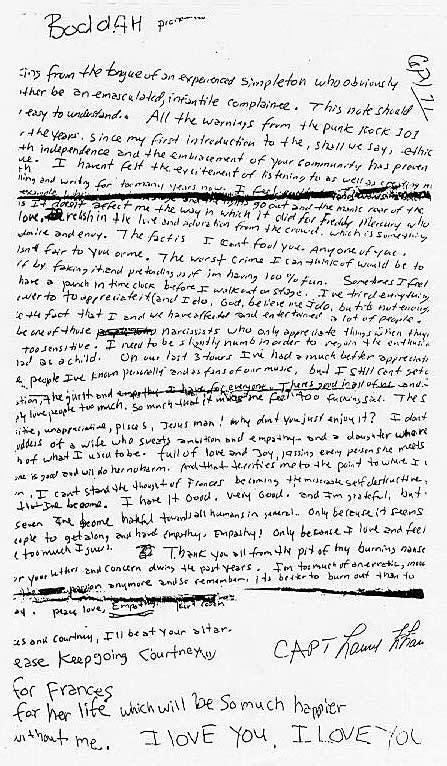 BoddAH
ing from the tongue of an experienced simpleton who obviously
ther be an emasculated, infantile complainee. This note should
easy to understand. All the warnings from the punk rock 101
the years. Since my first introduction to the, shall we say, ethic
th independence and the embracement of your community has proven
ue. I havent felt the excitement of listening to as well as creating
and writing for too many years now. I feel
go out and the manic roar of the
doesnt affect me the way in which it did for Freddy Mercury who
love, relish in the love and adoration from the crowd. which is something
admire and envy. The fact is I cant fool you. Any one of you.
isnt fair to you or me. The worst crime I can think of would be to
ff by faking it and pretending as if im having 100% fun. Sometimes I feel
have a punch in time clock before I walk out on stage. I've tried everything
ower to appreciate it (and I do, God, believe me I do, but its not enough.
the fact that I and we have affected and entertained a lot of people.
be one of those narcissists who only appreciate things when they
too sensitive. I need to be slightly numb in order to regain the enthusia
had as a child. On our last 3 tours I've had a much better appreciati
people I've known personally and as fans of our music, but I still cant get
empathy I have for everyone. Theres good in all of us and
ly love people too much. So much that it makes me feel too fucking sad. The
itive, unappreciative, pisces, Jesus man! why dont you just enjoy it? I dont
oddess of a wife who sweats ambition and empathy and a daughter who
h of what I used to be. full of love and Joy, kissing every person she meets
one is good and will do her no harm. And that terrifies me to the point to where I
n. I cant stand the thought of Frances becoming the miserable self destructive,
Ive become. I have it Good. Very Good. and Im grateful, but
seven Ive become hateful towards all humans in general. Only because it seems
eople to get along and have empathy. Empathy! Only because I love and feel
e too much I guess. Thank you all from the pit of my burning nause
or your letters and concern during the past years. I'm too much of an erratic, moo
passion anymore and so remember, its better to burn out than to
peace, love, Empathy.
es and Courtney, I'll be at your altar.
ease Keep going Courtney
for Frances
for her life which will be so much happier
without me. I LOVE YOU. I LOVE YOU